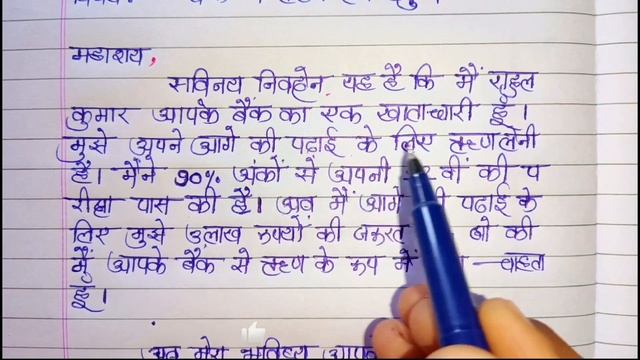 महाशय,
सविनय निवदेन यह है कि मैं राहुल
कुमार आपके बैंक का एक खाताधारी हूँ।
मुझे अपने आगे की पढाई के लिए ऋण लेनी
है। मैंने 90% अंकों से अपनी वीं की प
रीक्षा पास की है। अब मैं आगे की पढाई के
लिए मुझे लाख रूपयों की जरूरत जो की
मैं आपके बैंक से ऋण के रूप में चाहता
हूँ।
अब मेरा भविष्य आपके